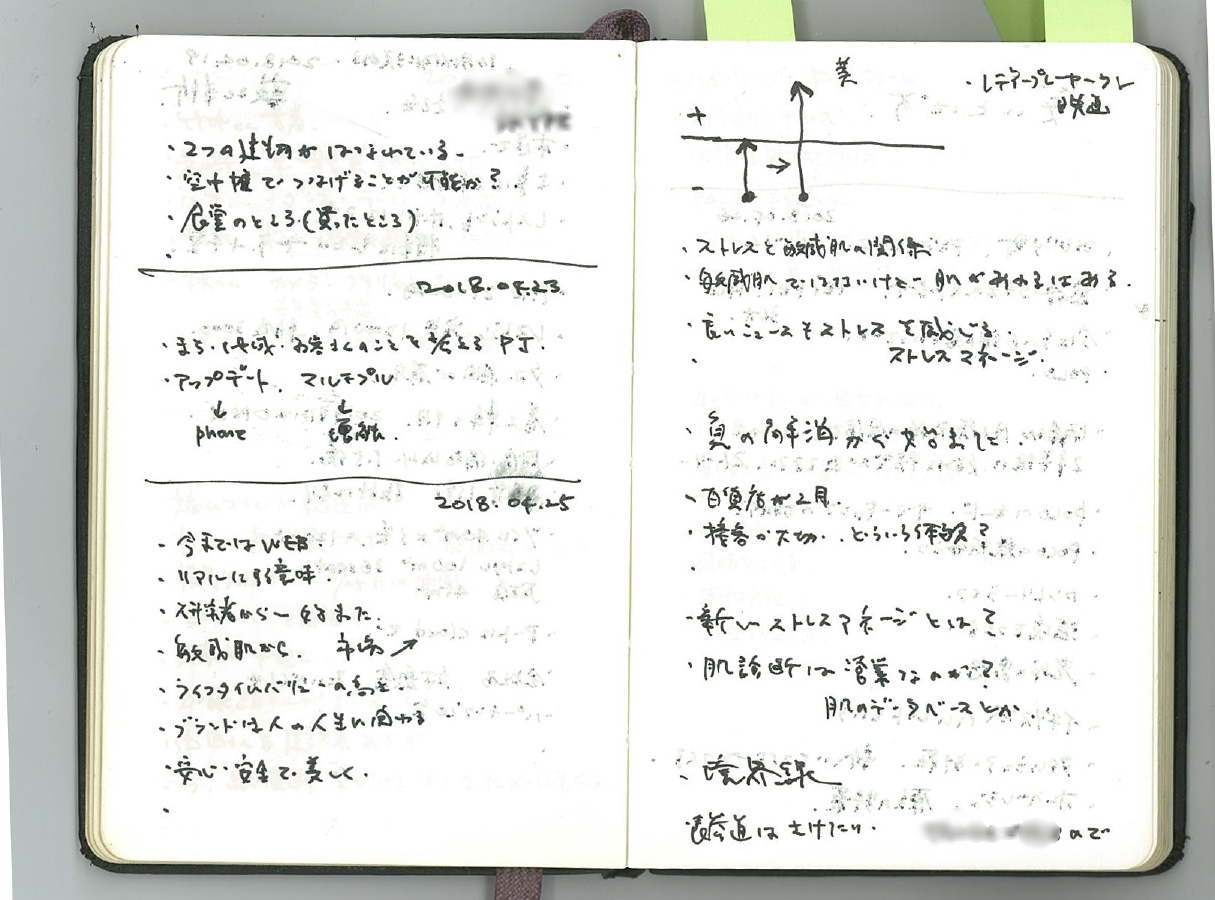 ・2つの建物がはなれている。
・空中権でつなげることが可能か?
・展望のところ(買ったところ)
・
2018.04.23
・まち・地域・お客さんのことを考えるPJ.
・アップデート、マルチプル
↓ ↓
phone
2018.04.25
・今まではWEB.
・リアルに弱意味.
・研究者から〜
・敏感肌から. 市場↗
・ライフタイムバリューの為を.
・ブランドは人の人生に関わる
・安心・安全で美しく.
・
美
・レディープレーヤーワン
映画
+
→
-
・ストレスと敏感肌の関係
・敏感肌ではないけど肌があれるはある.
・良いニュースもストレスを感じる.
・ストレスマネージ.
・負の解消から始まった.
・百貨店が2月.
・接客が大切.
・
・新しいストレスマネージとは?
・肌診断は営業なのか?
肌のデータベースとか
・境界線
表参道はさけたい. ので